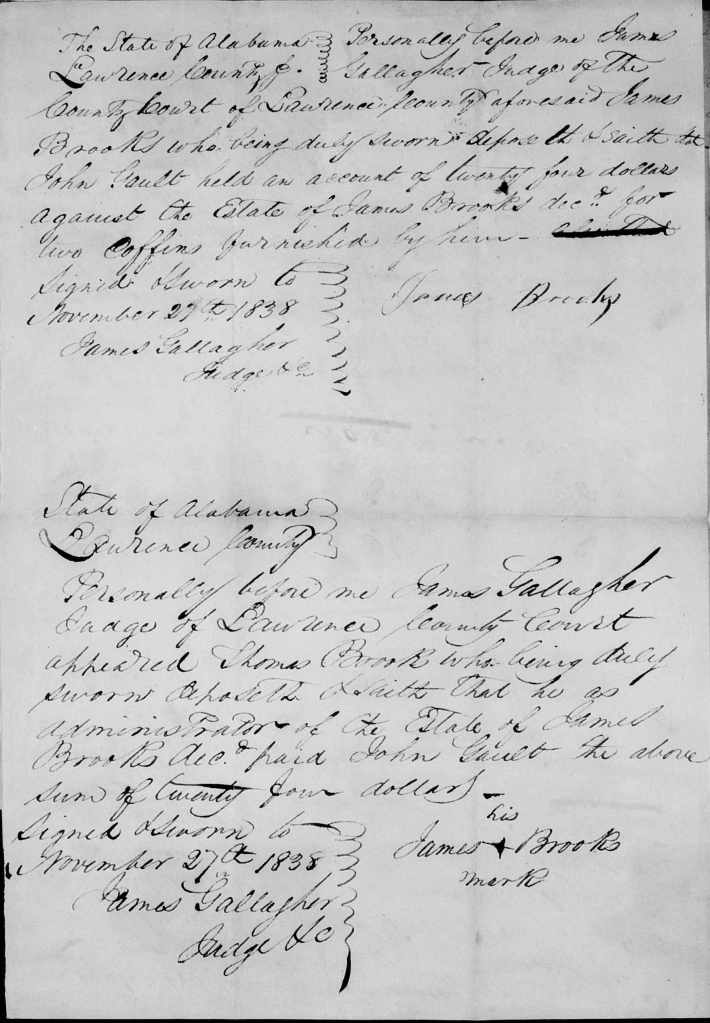 The State of Alabama Personally before me James
Lawrence County Gallagher Judge of the
County Court of Lawrence County aforesaid James
Brooks who being duly sworn deposeth & saith that
John Gault held an account of twenty four dollars
against the Estate of James Brooks decd. for
two Coffins furnished by him -
signed & sworn to
November 27th 1838 James Brooks
James Gallagher
Judge &c
State of Alabama
Lawrence County
Personally before me James Gallagher
Judge of Lawrence County Court
appeared Thomas Brook who being duly
sworn deposeth & saith that he as
administrator of the Estate of James
Brooks decd. paid John Gault the above
sum of twenty four dollars -
signed & sworn to his
November 27th 1838 James + Brooks
mark
James Gallagher
Judge &c